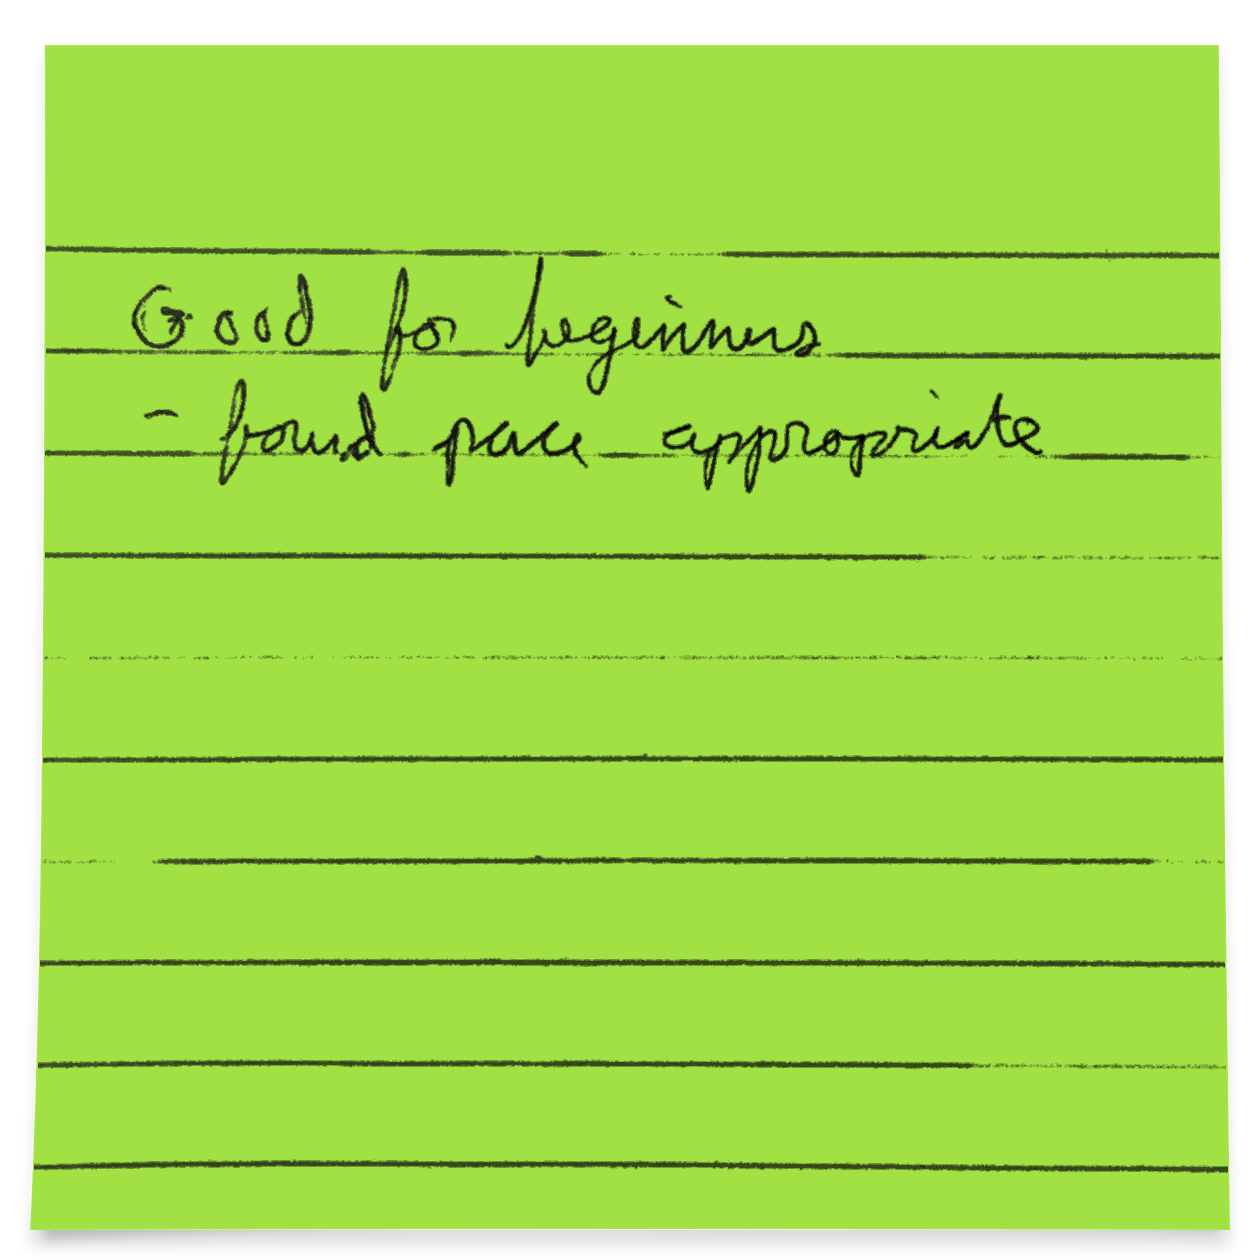 Good for beginners
- found pace appropriate